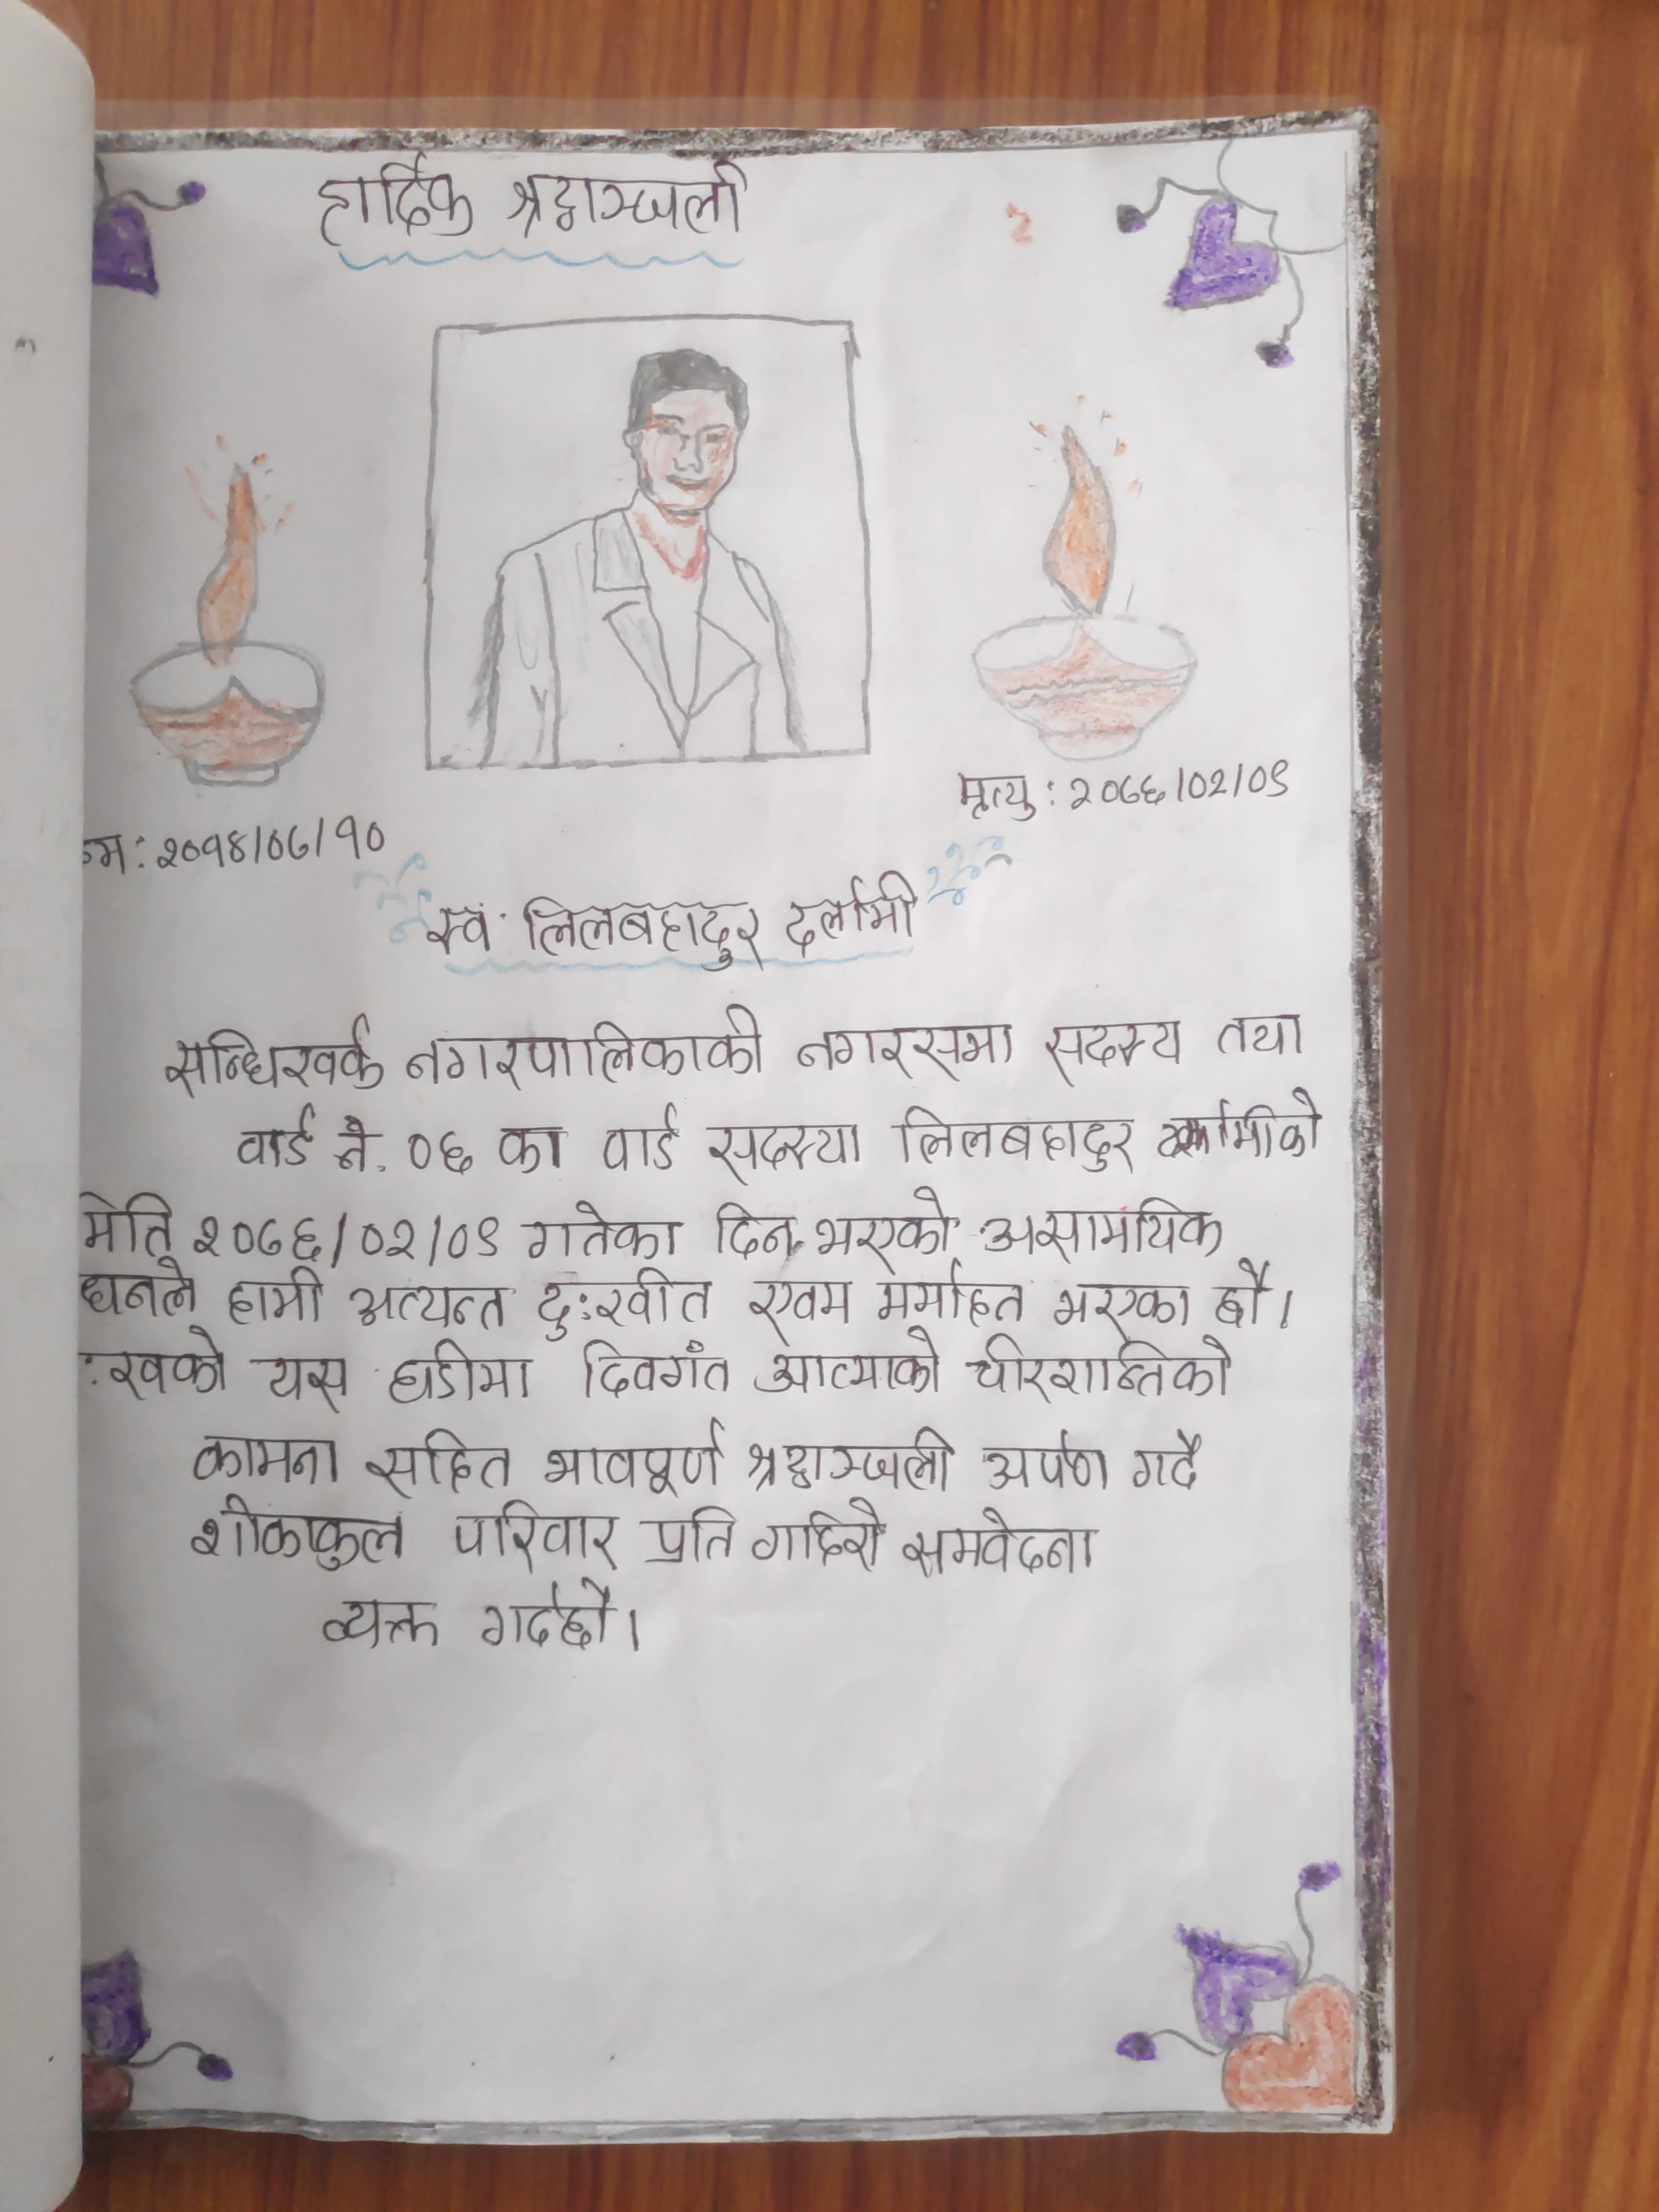 हार्दिक श्रद्धाञ्जली
२
मृत्यु : २०७६।०२।०९
न्म : २०१४।०७।१०
स्व. लिलबहादुर दर्लामी
सन्धिखर्क नगरपालिकाकी नगरसभा सदस्य तथा
वार्ड नं. ०६ का वार्ड सदस्या लिलबहादुर दर्लामीको
मिति २०७६/०२/०९ गतेका दिन भएको असामयिक
धनले हामी अत्यन्त दुःखीत एवम मर्माहत भएका छौ।
:खको यस घडीमा दिवगंत आत्माको चीरशान्तिको
कामना सहित भावपूर्ण श्रद्धाञ्जली अर्पण गर्दै
शोकाकुल परिवार प्रति गहिरो समवेदना
व्यक्त गर्दछौ।